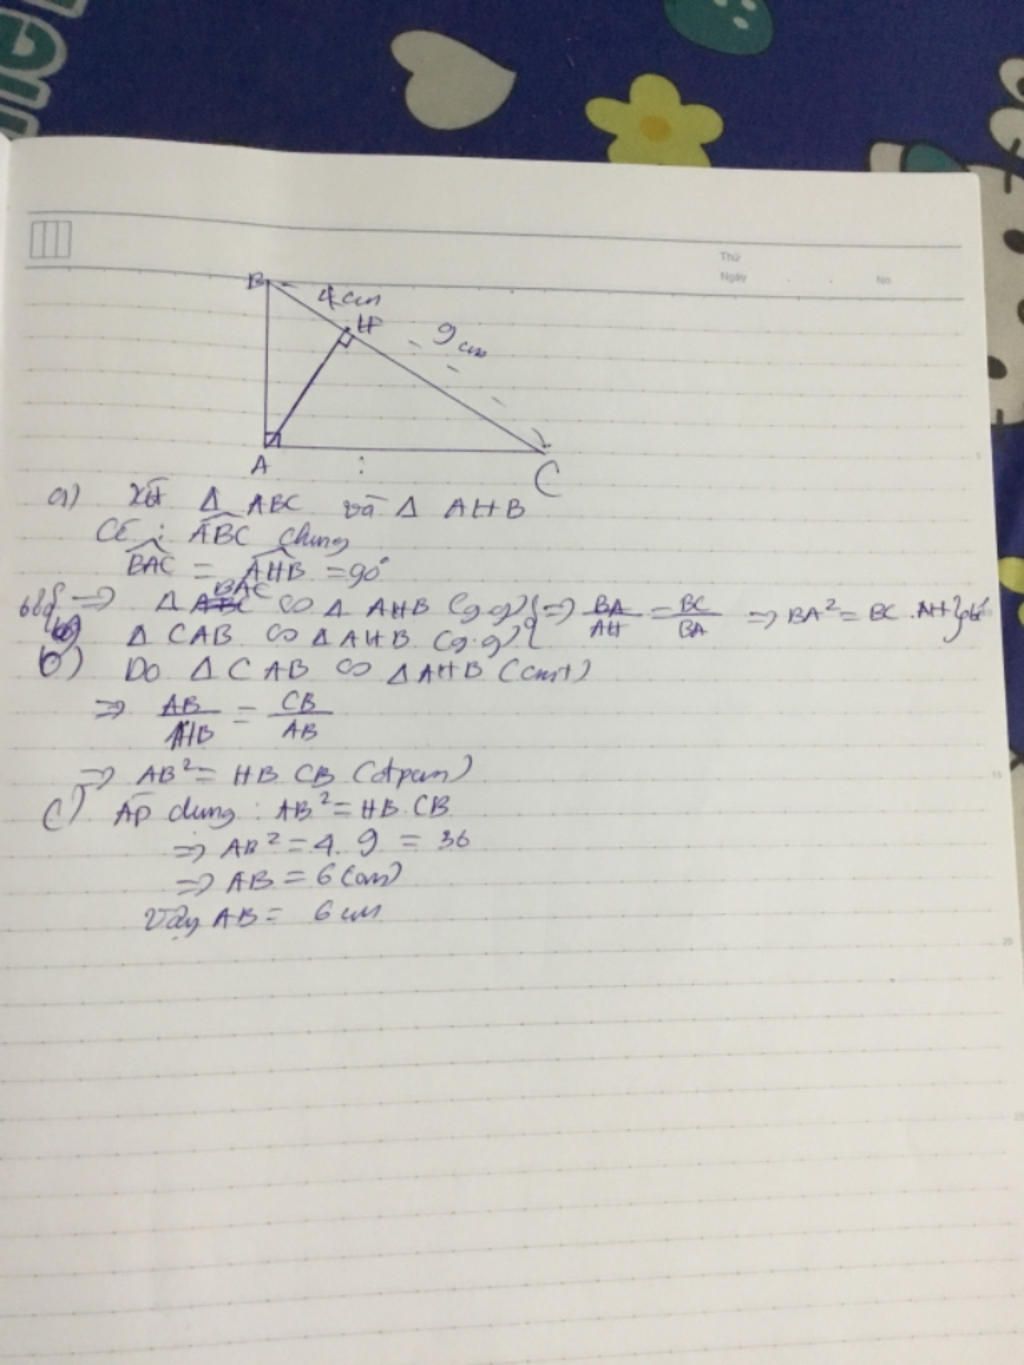 Thứ
Ngày
No
B
4cm
H
9 cm
A
C
a) Xét Δ ABC và Δ AHB
Có : ABC chung
BAC = AHB = 90°
⇒ Δ BAC ∽ Δ AHB (g.g) ⇒ BA/AH = BC/BA ⇒ BA² = BC . AH
Δ CAB ∽ Δ AHB (g.g)
b) Do Δ CAB ∽ Δ AHB (cmt)
⇒ AB/HB = CB/AB
⇒ AB² = HB . CB (đpcm)
c) Áp dụng : AB² = HB . CB
⇒ AB² = 4 . 9 = 36
⇒ AB = 6 (cm)
Vậy AB = 6 cm